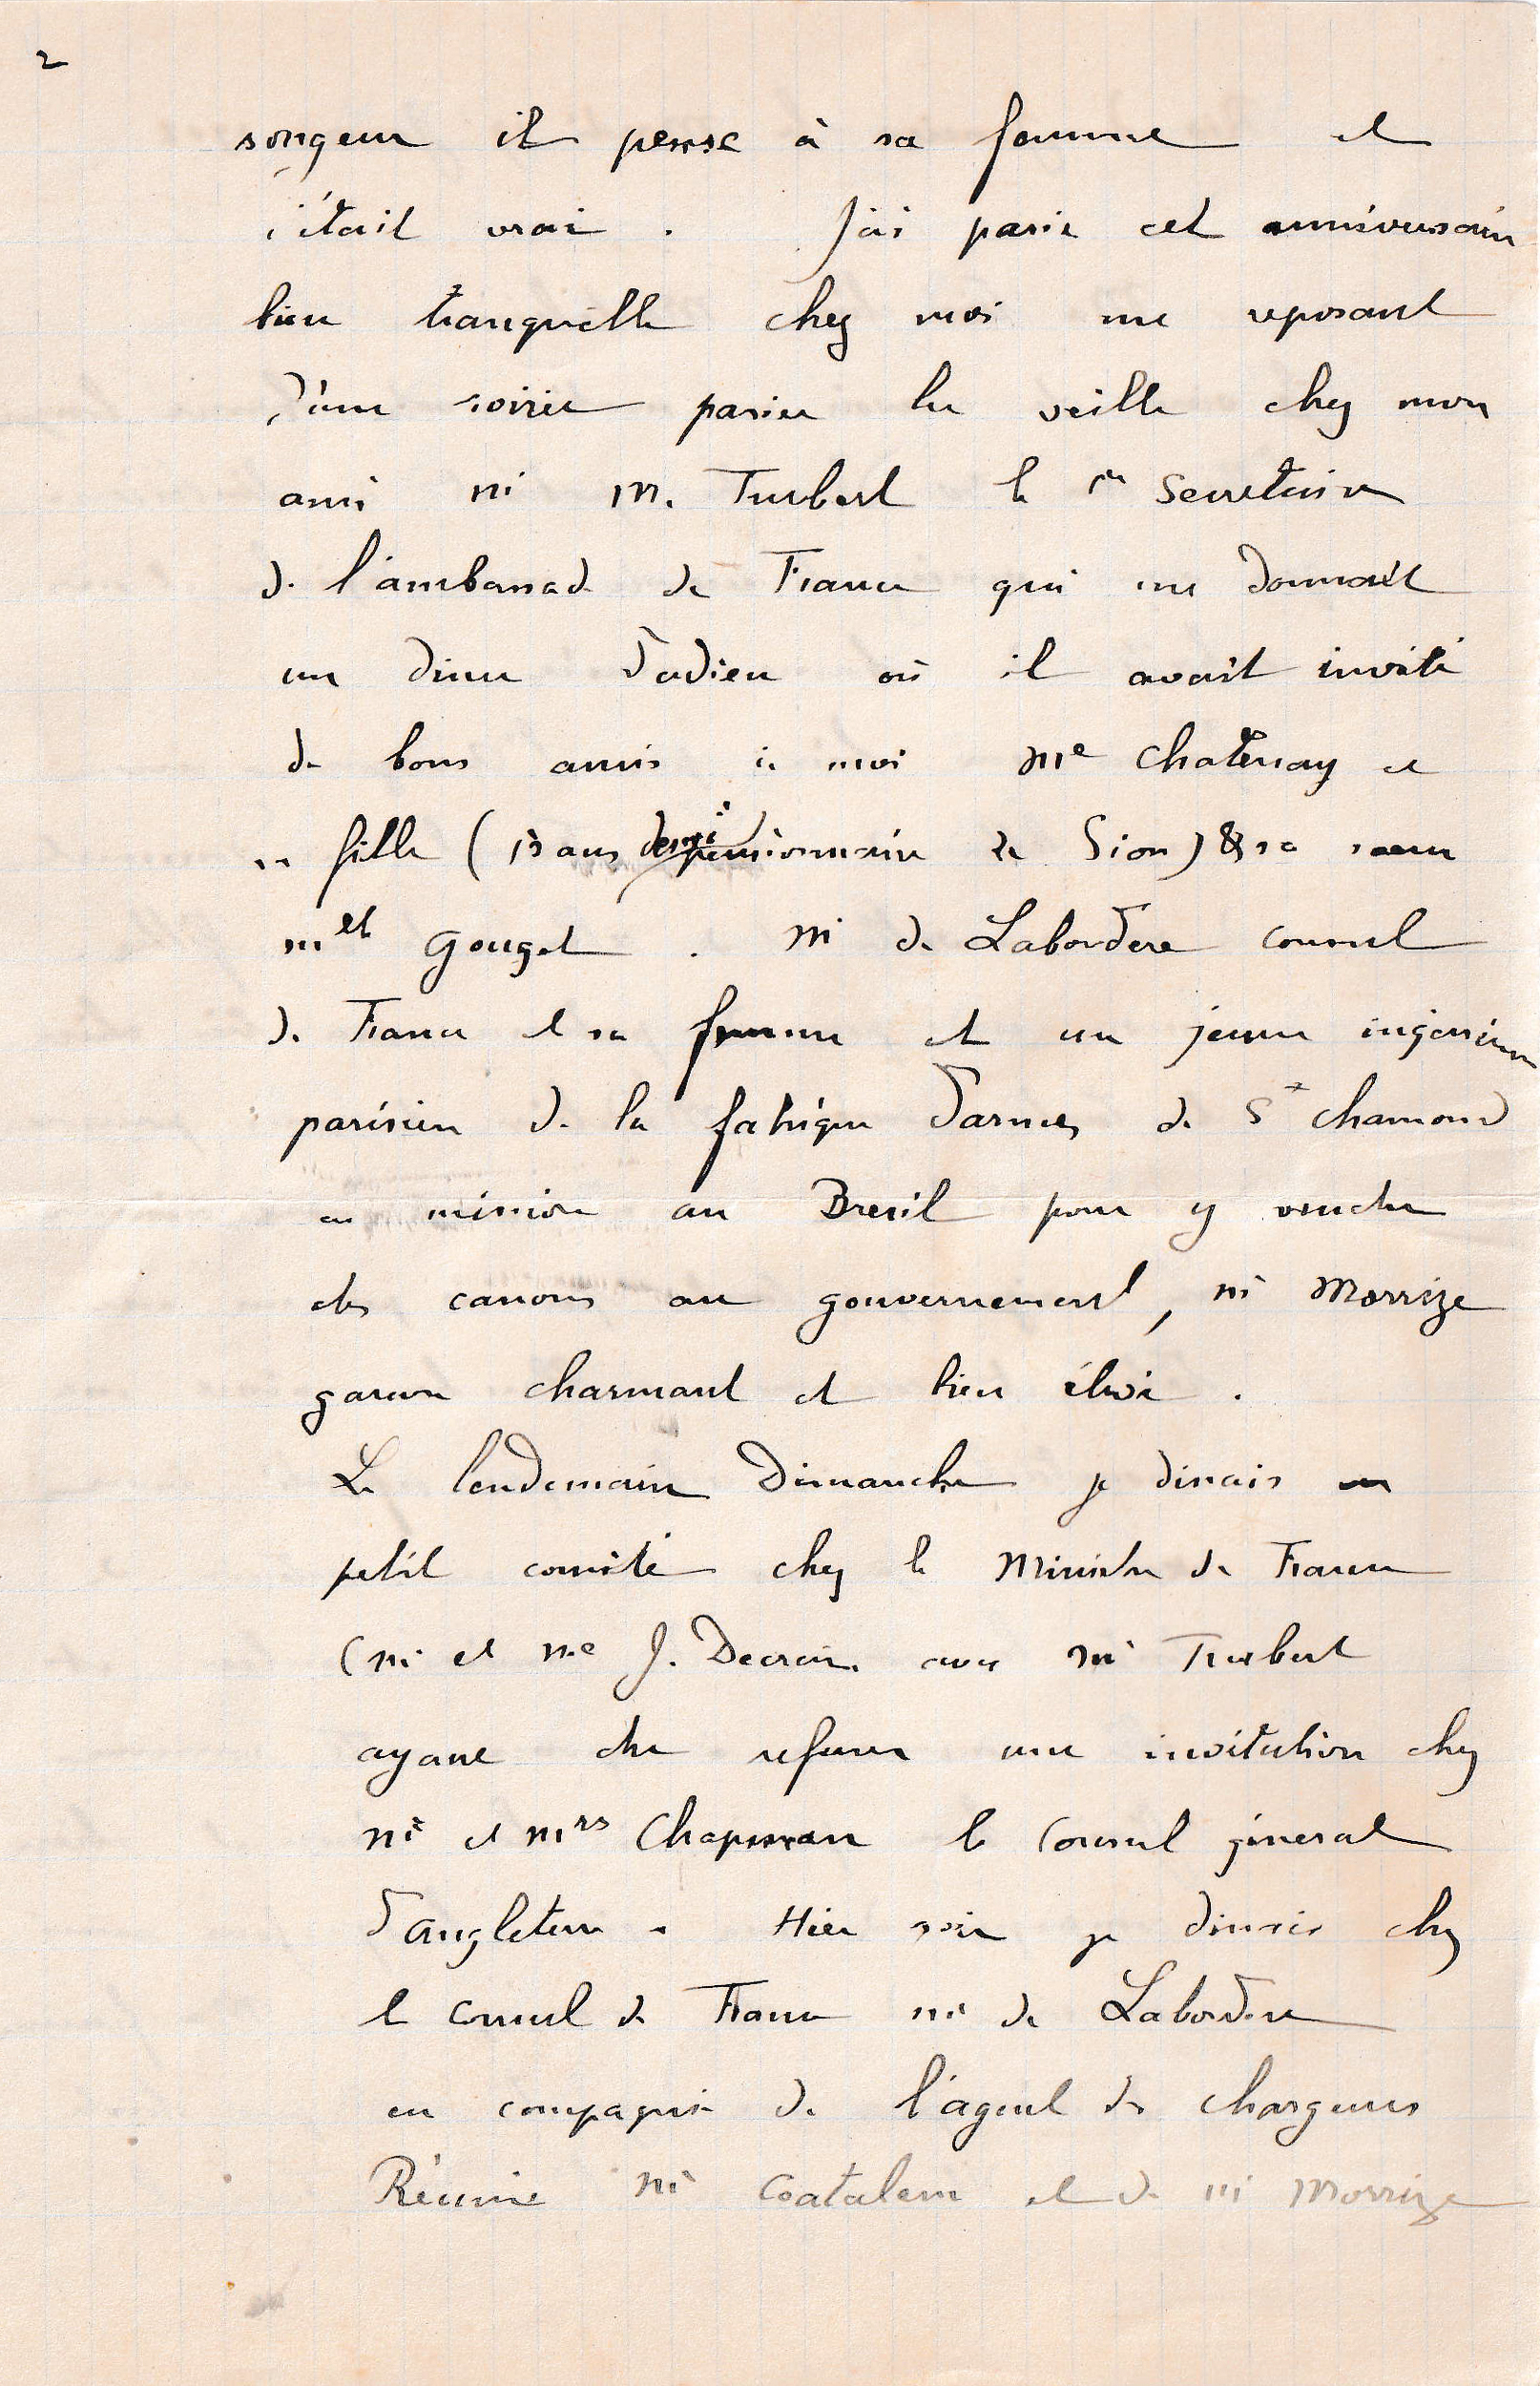 2
songeur il pense à sa femme et
c'était vrai. J'ai passé cet anniversaire
bien tranquille chez moi me reposant
d'une soirée passée la veille chez mon
ami Mr M. Turbert le 1er Secretaire
de l'ambassade de France qui me donnait
un diner d'adieu où il avait invité
de bons amis à moi Me Chatenay et
sa fille (13 ans demi pensionnaire de Sion) & sa sœur
Melle Gouget. Mr de Labordere consul
de France et sa femme et un jeune ingenieur
parisien de la fabrique d'armes de St Chamond
en mission au Bresil pour y vendre
des canons au gouvernement, Mr Morrize
garcon charmant et bien élevé.
Le lendemain Dimanche je dinais en
petit comité chez le Ministre de France
(Mr et Me J. Decrais avec Mr Turbert
ayant du refuser une invitation chez
Mr et Mrs Chapman le Consul géneral
d'angleterre. Hier soir je dinais chez
le consul de France Mr de Labordere
en compagnie de l'agent des Chargeurs
Réunis Mr Coatalem et de Mr Morrize